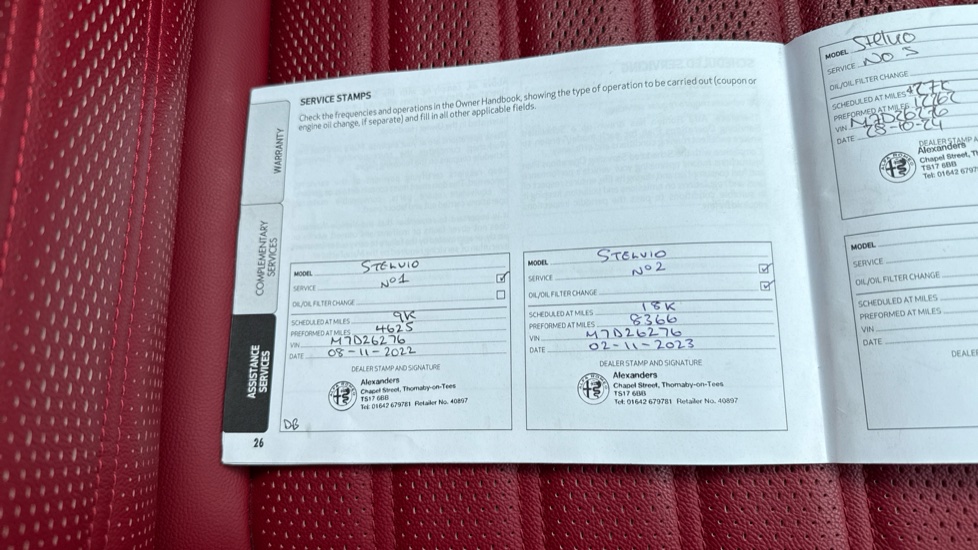 SERVICE STAMPS
Check the frequencies and operations in the Owner Handbook, showing the type of operation to be carried out (coupon or
engine oil change, if separate) and fill in all other applicable fields.
WARRANTY
COMPLEMENTARY
SERVICES
ASSISTANCE
SERVICES
26
MODEL STELVIO
SERVICE Nº1
OIL/OIL FILTER CHANGE
SCHEDULED AT MILES 9K
PREFORMED AT MILES 4625
VIN M7D26276
DATE 08-11-2022
DEALER STAMP AND SIGNATURE
Alexanders
Chapel Street, Thornaby-on-Tees
TS17 6BB
Tel: 01642 679781 Retailer No. 40897
DB
MODEL STELVIO
SERVICE Nº2
OIL/OIL FILTER CHANGE
SCHEDULED AT MILES 18K
PREFORMED AT MILES 8366
VIN M7D26276
DATE 02-11-2023
DEALER STAMP AND SIGNATURE
Alexanders
Chapel Street, Thornaby-on-Tees
TS17 6BB
Tel: 01642 679781 Retailer No. 40897
MODEL Stelvio
SERVICE NO 3
OIL/OIL FILTER CHANGE
SCHEDULED AT MILES
PREFORMED AT MILES
VIN M7D26276
DATE 28-10-24
DEALER STAMP A
Alexanders
Chapel Street, T
TS17 6BB
Tel: 01642 6797
MODEL
SERVICE
OIL/OIL FILTER CHANGE
SCHEDULED AT MILES
PREFORMED AT MILES
VIN
DATE
DEALE